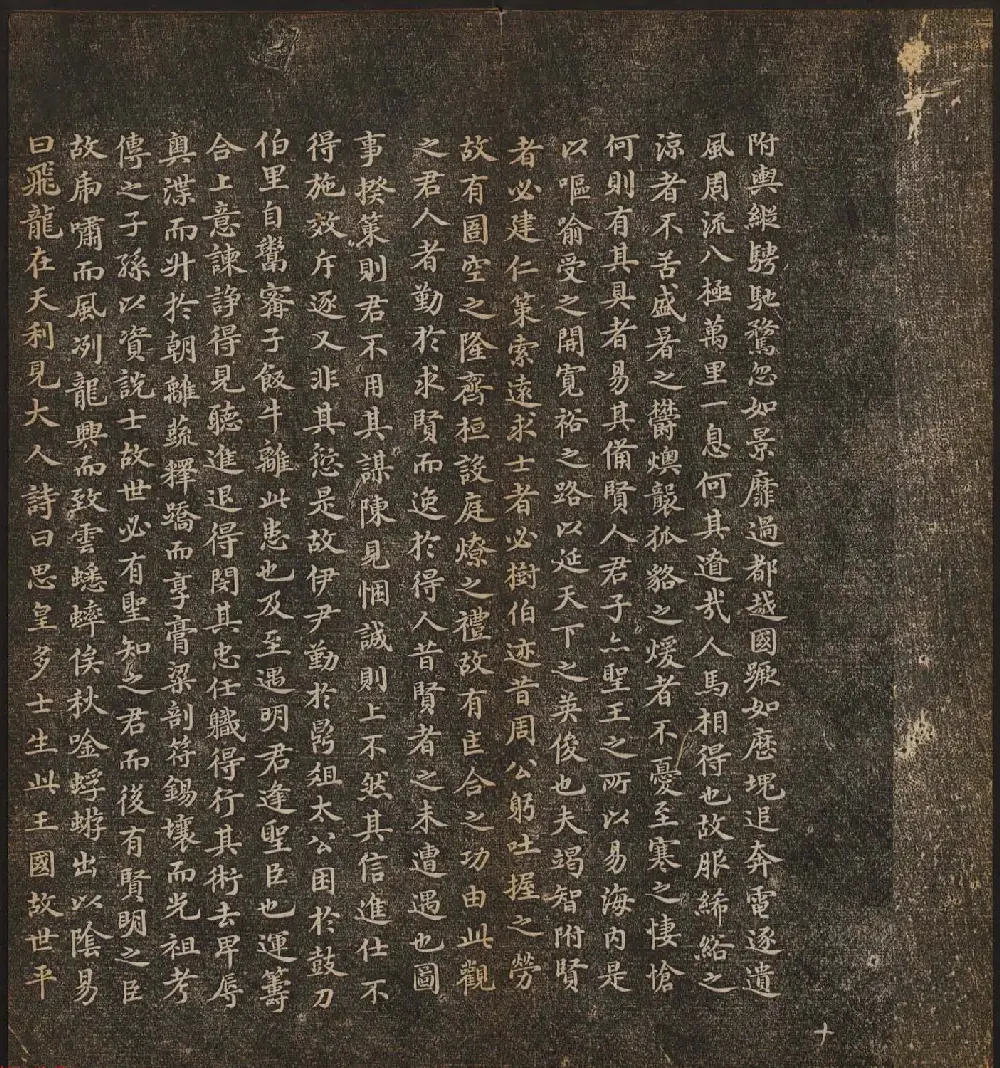 附輿縱騁馳騖忽如景靡過都越國蹶如歷塊追奔電逐遺
風周流八極萬里一息何其遼哉人馬相得也故服絺綌之
涼者不苦盛暑之欝燠襲狐貉之煖者不憂至寒之悽愴
何則有其具者易其俻賢人君子亦聖王之所以易海內是
以嘔喻受之開寛裕之路以延天下之英俊也夫竭智附賢
者必建仁策索遠求士者必樹伯迹昔周公躬吐握之勞
故有圄空之隆齊桓設庭燎之禮故有匡合之功由此觀
之君人者勤於求賢而逸於得人昔賢者之未遭遇也圖
事揆策則君不用其謀陳見悃誠則上不然其信進仕不
得施效斥逐又非其愆是故伊尹勤於鼎俎太公困於鼓刀
伯里自鬻甯子飯牛離此患也及至遇明君逢聖臣也運籌
合上意諫諍得見聽進退得関其忠任職得行其術去卑辱
奧渫而升於朝離蔬釋蹻而享膏粱剖符錫壤而光祖考
傳之子孫以資說士故世必有聖知之君而後有賢明之臣
故虎嘯而風冽龍興而致雲蟋蟀俟秋唫蜉蝣出以陰易
曰飛龍在天利見大人詩曰思皇多士生此王國故世平
十